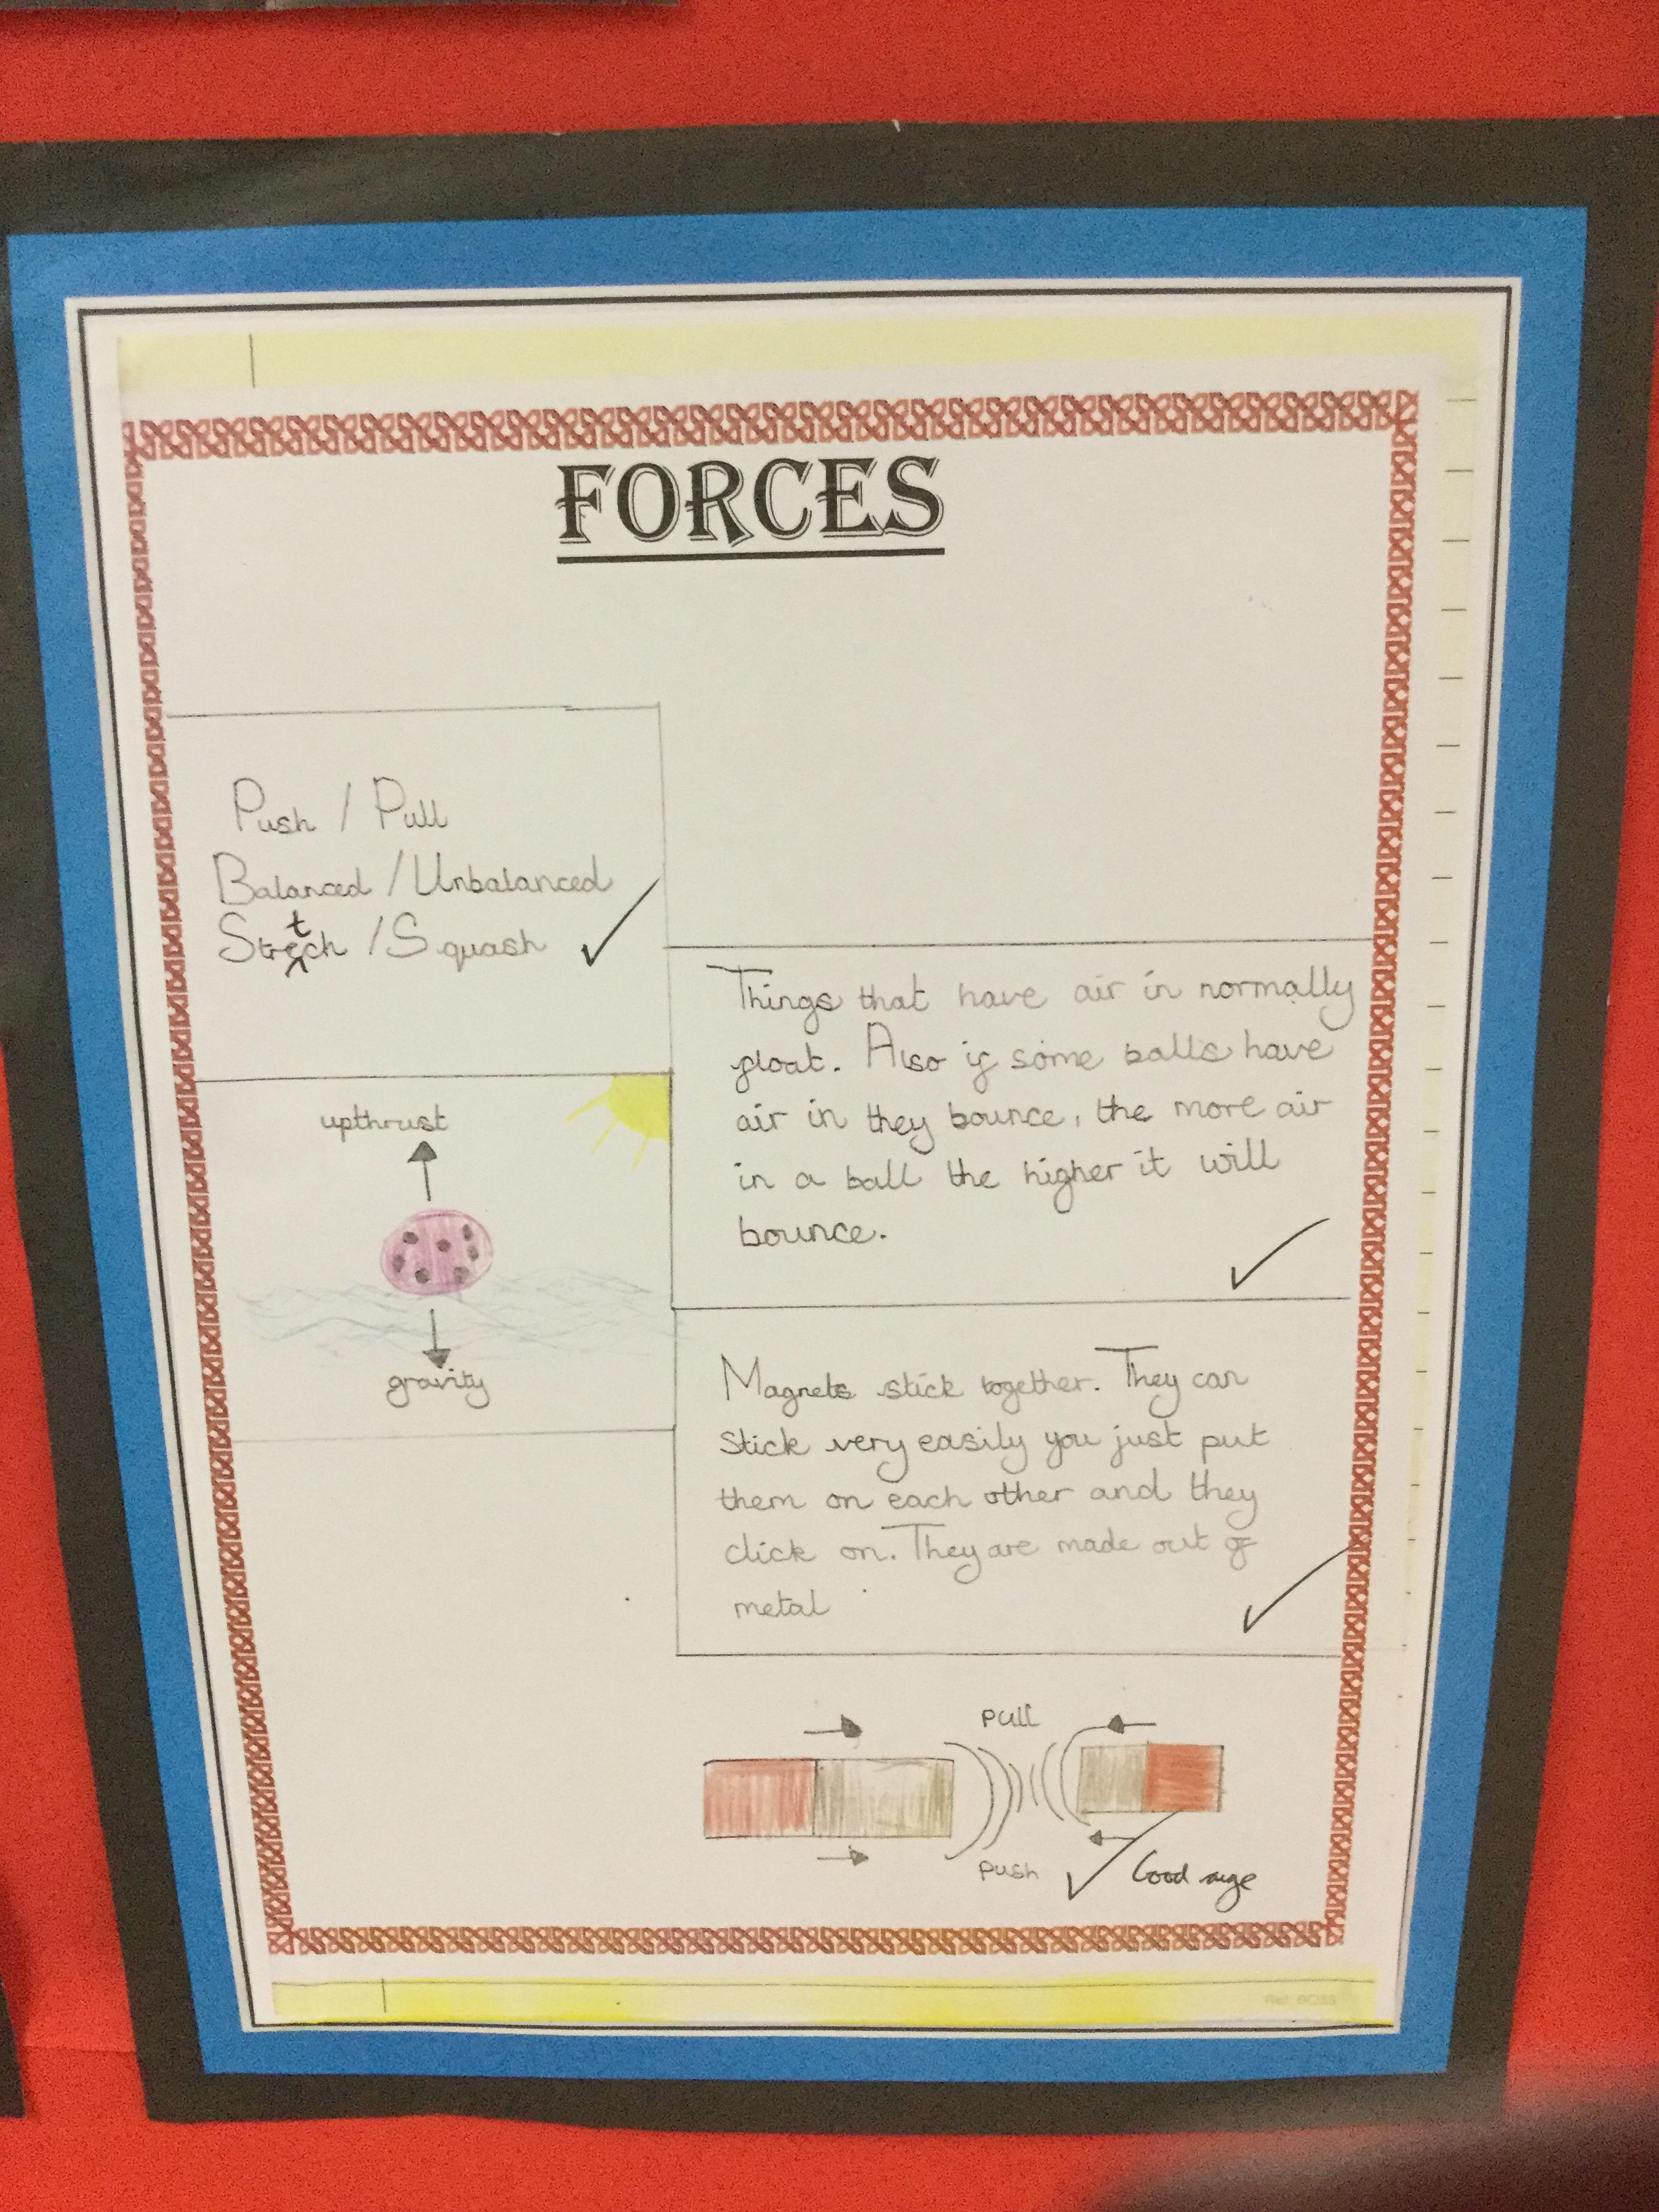 FORCES
Push / Pull
Balanced / Unbalanced
Stretch / Squash
upthrust
gravity
Things that have air in normally
float. Also if some balls have
air in they bounce, the more air
in a ball the higher it will
bounce.
Magnets stick together. They can
stick very easily you just put
them on each other and they
click on. They are made out of
metal
Pull
Push
Good